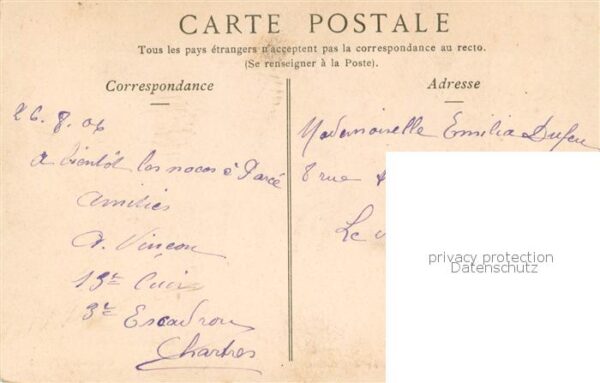 CARTE POSTALE
Tous les pays étrangers n'acceptent pas la correspondance au recto.
(Se renseigner à la Poste).
Correspondance
Adresse
26. 8. 06
a bientôt les noces à Parcé
Amitiés
A. Vinçon
13e Cuir
3e Escadron
Chartres
Mademoiselle Emilia Dufeu
8 rue
Le
privacy protection
Datenschutz